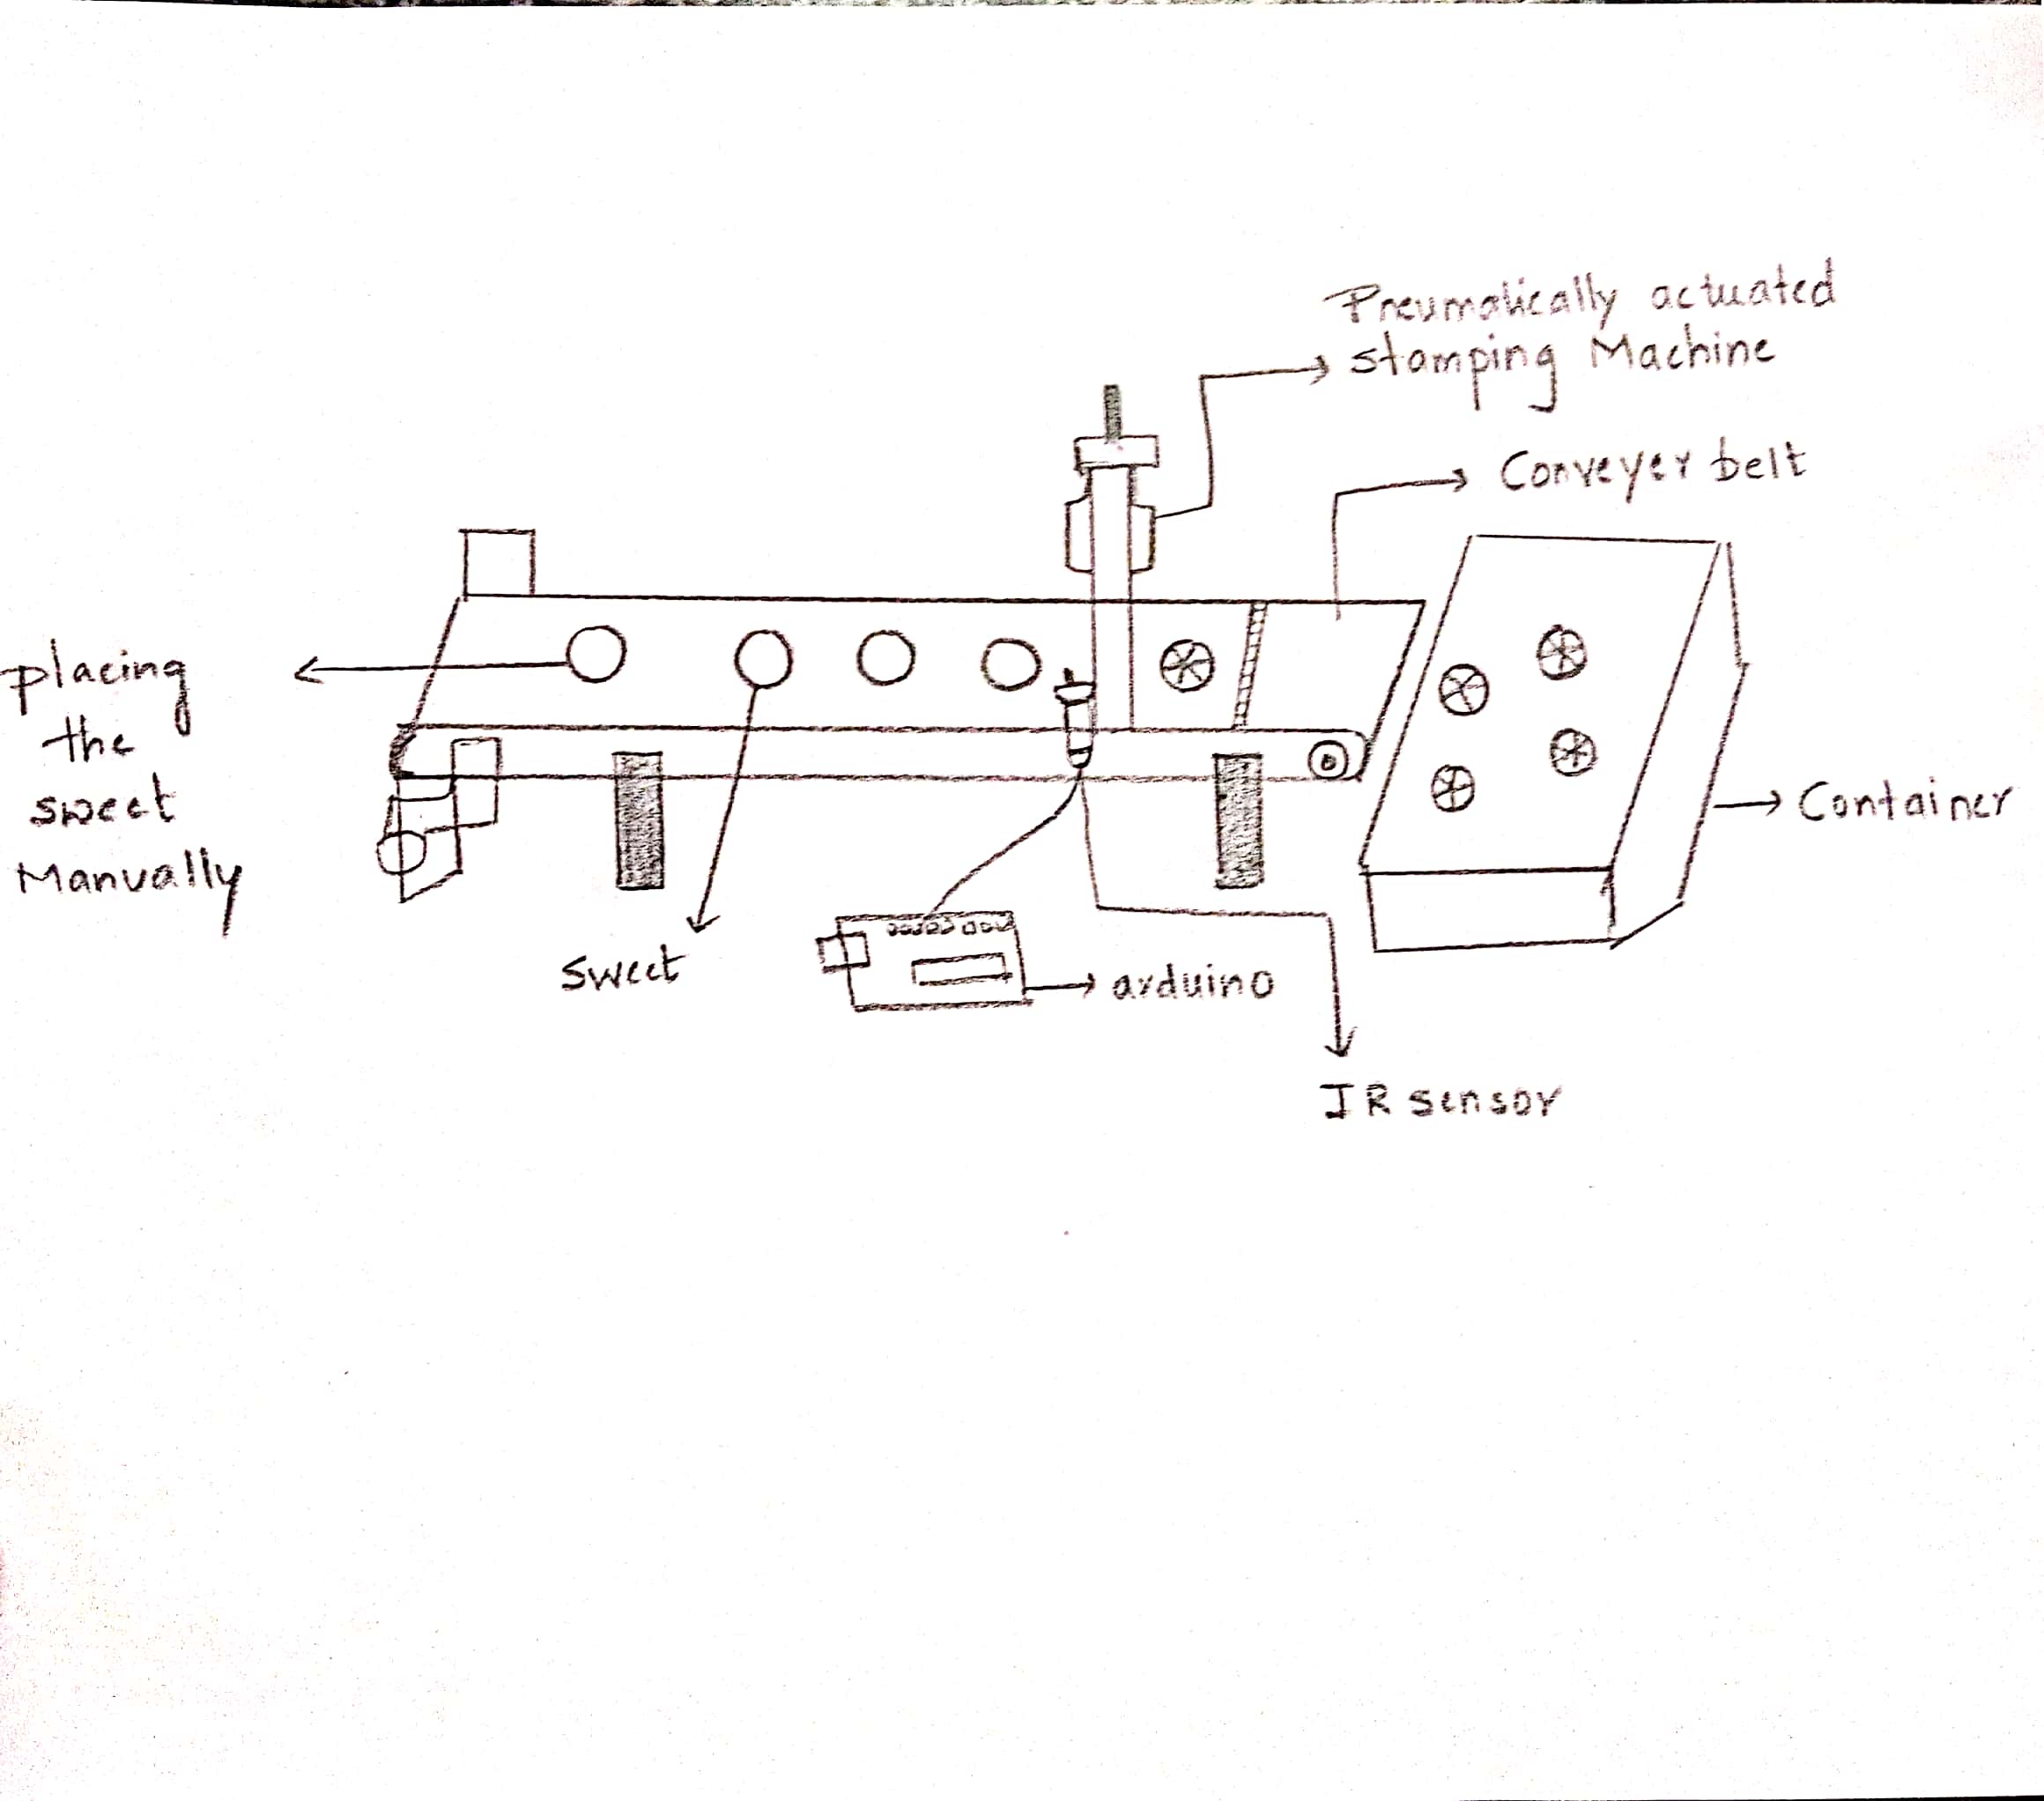 Pneumatically actuated
stamping Machine
Conveyer belt
placing
the
sweet
Manually
Container
sweet
arduino
IR sensor